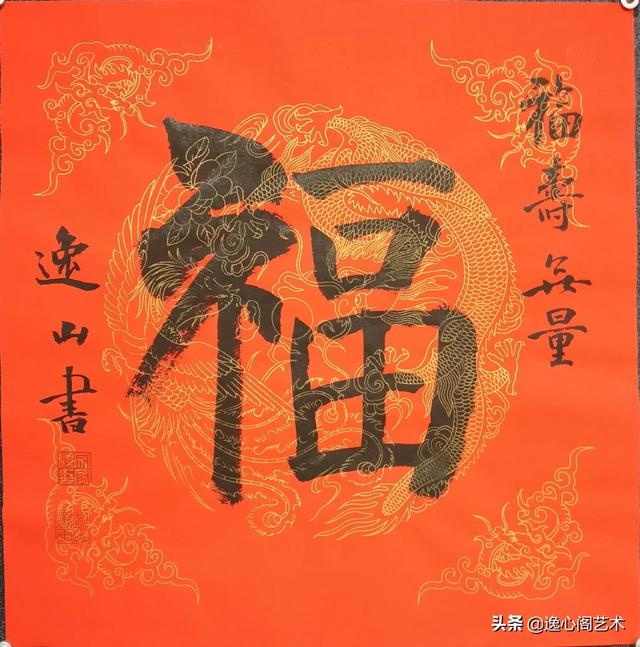 福壽無量
福
逸山書
头条 @逸心阁艺术